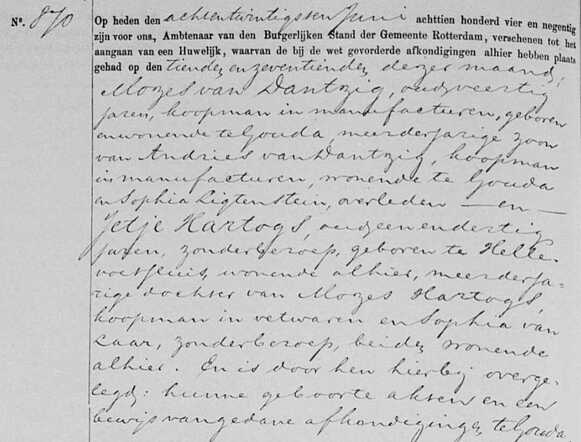 No. 870
Op heden den achtentwintigsten Juni achttien honderd vier en negentig
zijn voor ons, Ambtenaar van den Burgerlijken Stand der Gemeente Rotterdam, verschenen tot het
aangaan van een Huwelijk, waarvan de bij de wet gevorderde afkondigingen alhier hebben plaats
gehad op den tienden en zeventienden dezer maand,
Mozes van Dantzig, oud veertig
jaren, koopman in manufacturen, geboren
en wonende te Gouda, meerderjarige zoon
van Andries van Dantzig, koopman
in manufacturen, wonende te Gouda
en Sophia Ligtenstein, overleden — en —
Jetje Hartogs, oud eenendertig
jaren, zonder beroep, geboren te Helle-
voetsluis, wonende alhier, meerderja-
rige dochter van Mozes Hartogs,
koopman in vetwaren en Sophia van
Laar, zonder beroep, beiden wonende
alhier. En is door hen hierbij overge-
legd: hunne geboorte akten en een
bewijs van gedane afkondigingen te Gouda